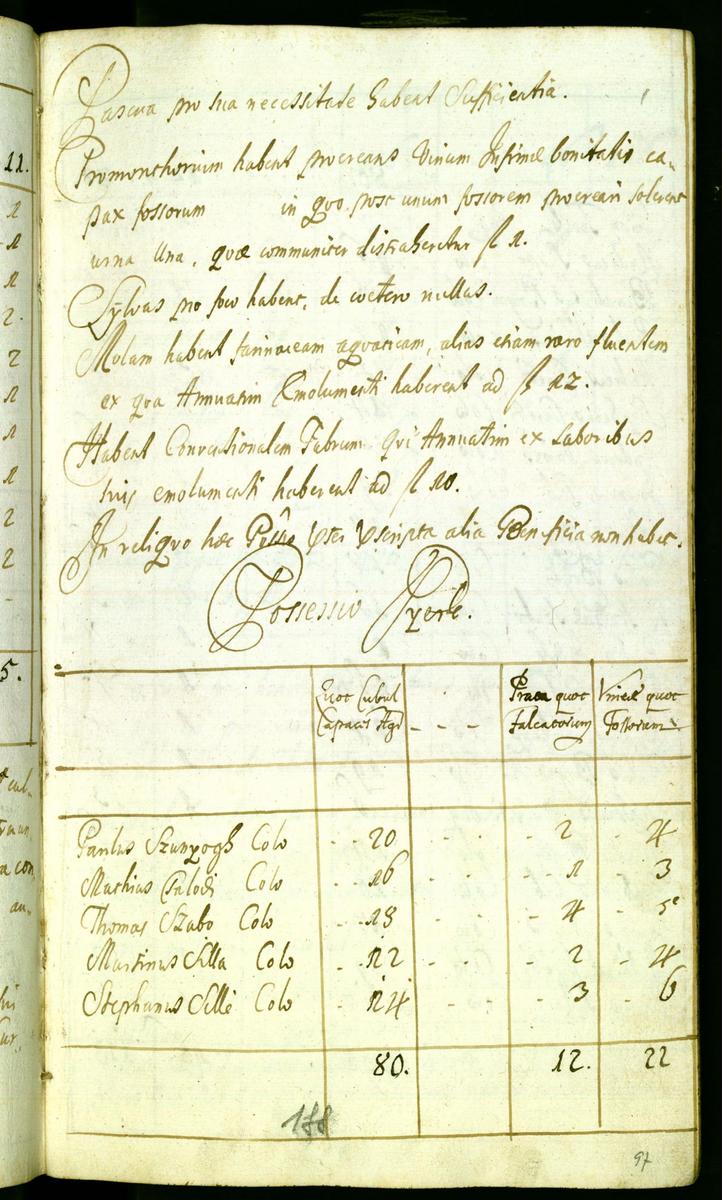 11.
Pascua pro sua necessitate habent Sufficientia.
Promonthorium habent procreans Vinum Infimæ bonitatis ca-
pax fossorum in quo post unum fossorem procreari solerent
urna Una, quæ communiter distraheretur f 1.
Sylvas pro foco habent, de coetero nullas.
Molam habent farinaceam aquaticam, alias etiam raro fluentem
ex qua Annuatim Emolumenti haberent ad f 12.
Habent Conventionalem Fabrum qui Annuatim ex Laboribus
suis emolumenti haberent ad f 10.
In reliquo hæc alia Beneficia non habet.
Possessio
Quot Cubul Prata quot Vineæ quot
Capacis Agri - - - Falcatorum Fossorum
Paulus Szunyogh Colo - - 20 - - - 2 - 4
Mathias Colo - - 16 - - - 1 3
Thomas Szabo Colo - - 18 - - - 4 - 5
Martinus Silla Colo - - 12 - - - 2 - 4
Stephanus Sille Colo - - 14 - - - 3 - 6
80. 12. 22
188
97